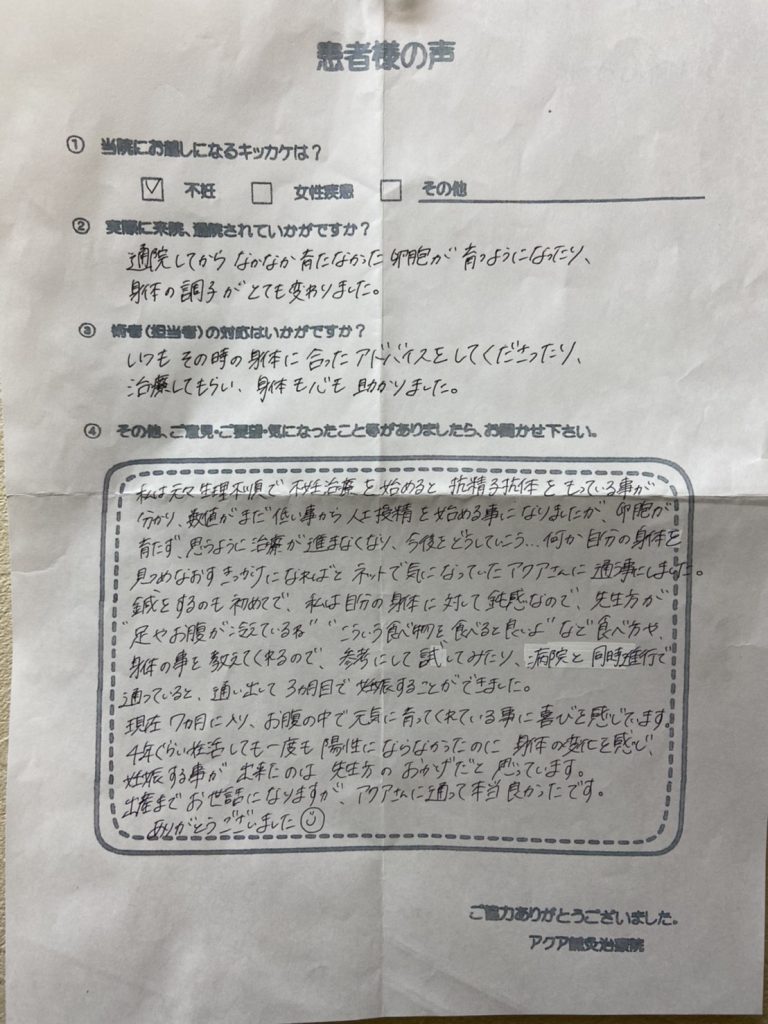 患者様の声
① 当院にお越しになるキッカケは?
☑ 不妊 ☐ 女性疾患 ☐ その他
② 実際に来院、通院されていかがですか?
通院してから なかなか育たなかった 卵胞が 育つようになったり、
身体の調子が とても変わりました。
③ 術者(担当者)の対応はいかがですか?
いつも その時の身体に 合った アドバイスをしてくださったり、
治療してもらい、身体も心も 助かりました。
④ その他、ご意見・ご要望・気になったこと等がありましたら、お聞かせ下さい。
私は元々生理不順で 不妊治療を始めると 抗精子抗体をもっている事が
分かり、数値がまだ低い事から 人工授精を始める事になりましたが 卵胞が
育たず、思うように治療が進まなくなり、今後をどうしていこう…何か自分の身体を
見つめなおすきっかけになればと ネットで気になっていたアクアさんに 通う事にしました。
鍼をするのも 初めてで、私は自分の身体に対して鈍感なので、先生方が
“足やお腹が冷えているね” “こういう食べ物を食べると良いよ” など食べ方や、
身体の事を教えてくれるので、参考にして試してみたり、病院と同時進行で
通っていると、通い出して 3カ月目で妊娠することができました。
現在7カ月に入り、お腹の中で元気に育ってくれている事に喜びを感じています。
4年ぐらい妊活しても一度も陽性にならなかったのに 身体の変化を感じ、
妊娠する事が 出来たのは 先生方の おかげだと 思っています。
出産まで お世話になりますが、アクアさんに通って本当良かったです。
ありがとうございました☺
ご協力ありがとうございました。
アクア鍼灸治療院